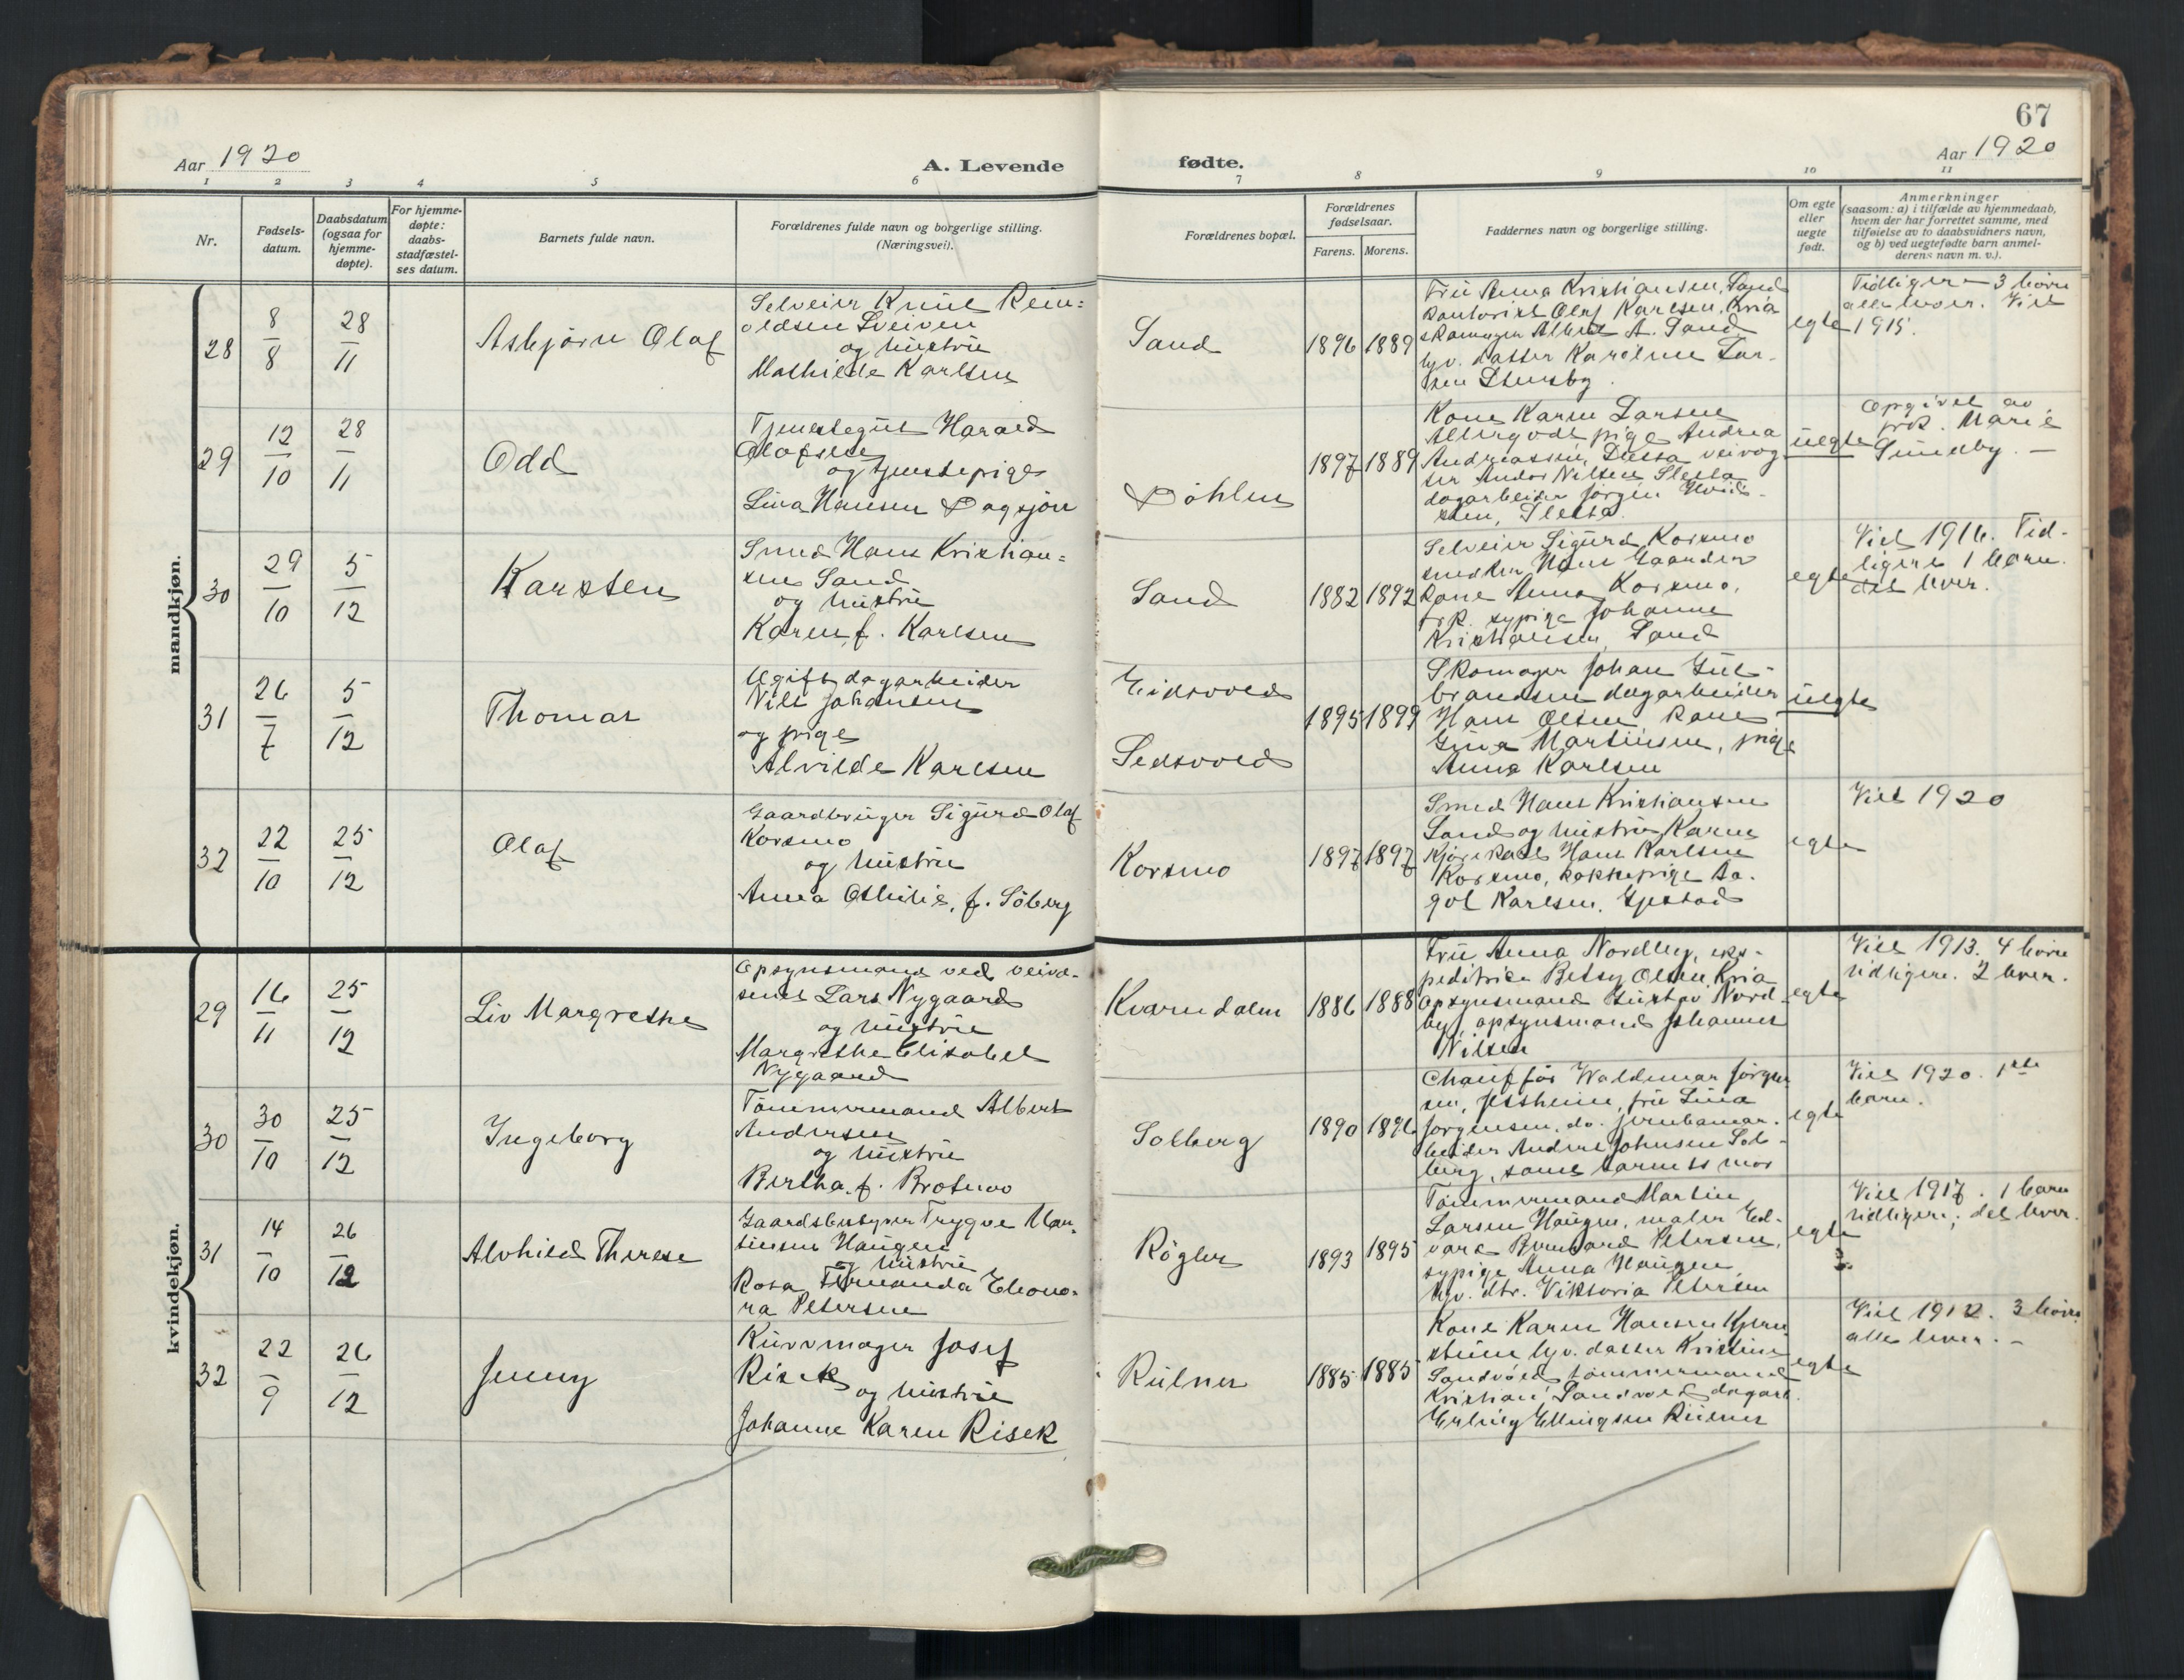 67
Aar 1920
A. Levende
fødte.
Aar 1920
1 2 3 4 5 6 7 8 9 10 11
Nr.
Fødsels-
datum.
Daabsdatum
(ogsaa for
hjemme-
døpte).
For hjemme-
døpte:
daabs-
stadfæstel-
ses datum.
Barnets fulde navn.
Forældrenes fulde navn og borgerlige stilling.
(Næringsvei).
Forældrenes bopæl.
Forældrenes
fødselsaar.
Farens. Morens.
Faddernes navn og borgerlige stilling.
Om egte
eller
uegte
født.
Anmerkninger
(saasom: a) i tilfælde av hjemmedaab,
hvem der har forrettet samme, med
tilføielse av to daabsvidners navn,
og b) ved uegtefødte barn anmel-
derens navn m. v.).
mandkjøn.
28
8/8
28/11
Asbjørn Olaf
Selveier Knut Rein=
oldsen Sveiven
og hustru
Mathilde Karlsen
Sand
1896 1889
Fru Anna Kristiansen, Sand
kontorist Olaf Karlsen, Kria
skomager Albert A. Sand
hjv. datter Karoline Lar-
sen
egte
Tidligere 3 børn
alle lever. Viet
1915.
29
12/10
28/11
Odd
Tjenestegut Harald
Olafsen
og tjenestepige
Lina Hansen Dagsjøn
Døhlen
1897 1889
Kone Karen Larsen
pige Andrea
Andreassen,
Nilsen Sletta
dagarbeider Jørgen
Sletta.
uegte
Opgivet av
frk. Marie
Sundby. –
30
29/10
5/12
Karsten
Smed Hans Kristian=
sen Sand
og hustru
Karen, f. Karlsen
Sand
1882 1892
Selveier Sigurd Korsmo
Hans Gaarder
kone Anna Korsmo,
frk. sypige Johanne
Kristiansen, Sand
egte
Viet 1916. Tid-
ligere 1 barn.
det lever.
31
26/7
5/12
Thomas
Ugift dagarbeider
Nils Johansen
og pige
Alvilde Karlsen
Eidsvold
Sedsvold
1895 1899
Skomager Johan Gul-
brandsen dagarbeider
Hans Olsen kone
Gina Martinsen, pige
Anna Karlsen
uegte
32
22/10
25/12
Olaf
Gaardbruger Sigurd Olaf
Korsmo
og hustru
Anna Othilie, f. Söberg
Korsmo
1897 1897
Smed Hans Kristiansen
Sand og hustru Karen
Kjørekarl Hans Karlsen
Korsmo, kokkepige Aa-
got Karlsen,
egte
Viet 1920
kvindekjøn.
29
16/11
25/12
Liv Margrethe
Opsynsmand ved veivæ-
senet Lars Nygaard
og hustru
Margrethe Elisabet
Nygaard
Kverndalen
1886 1888
Fru Anna Nordby, eks-
peditrice Betsy Olsen, Kria
opsynsmand Gustav Nord-
by, opsynsmand Johannes
Nilsen
egte
Viet 1913. 4 børn
tidligere. 2 lever.
30
30/10
25/12
Ingeborg
Tømmermand Albert
Andersen
og hustru
Bertha, f. Brotmoo
Solberg
1890 1896
Chauffør Waldemar Jørgen
sen, Jessheim, fru Lina
Jørgensen, do. jernbanear-
beider Anders Johnsen Sol-
berg, samt barnets mor
egte
Viet 1920. 1ste
barn.
31
14/10
26/12
Alvhild Therese
Gaardsbestyrer Trygve Mar-
tinsen Haugen
og hustru
Rosa Fernanda Eleono-
ra Petersen
Røgler
1893 1895
Tømmermand Martin
Larsen Haugen, maler Ed-
vard Bernhard Petersen,
sypige Anna Haugen
hjv. dtr. Viktoria Petersen
egte
Viet 1917. 1 barn
tidligere; det lever.
32
22/9
26/12
Jenny
Kurvmager Josef
Risek
og hustru
Johanne Karen Risek
Rulner
1885 1885
Kone Karen Hansen
hjv. datter Kristine
Sandvold tømmermand
Kristian Sandvold dagarb.
Erling Ellingsen Rulner
egte
Viet 1912. 3 børn
alle lever. –